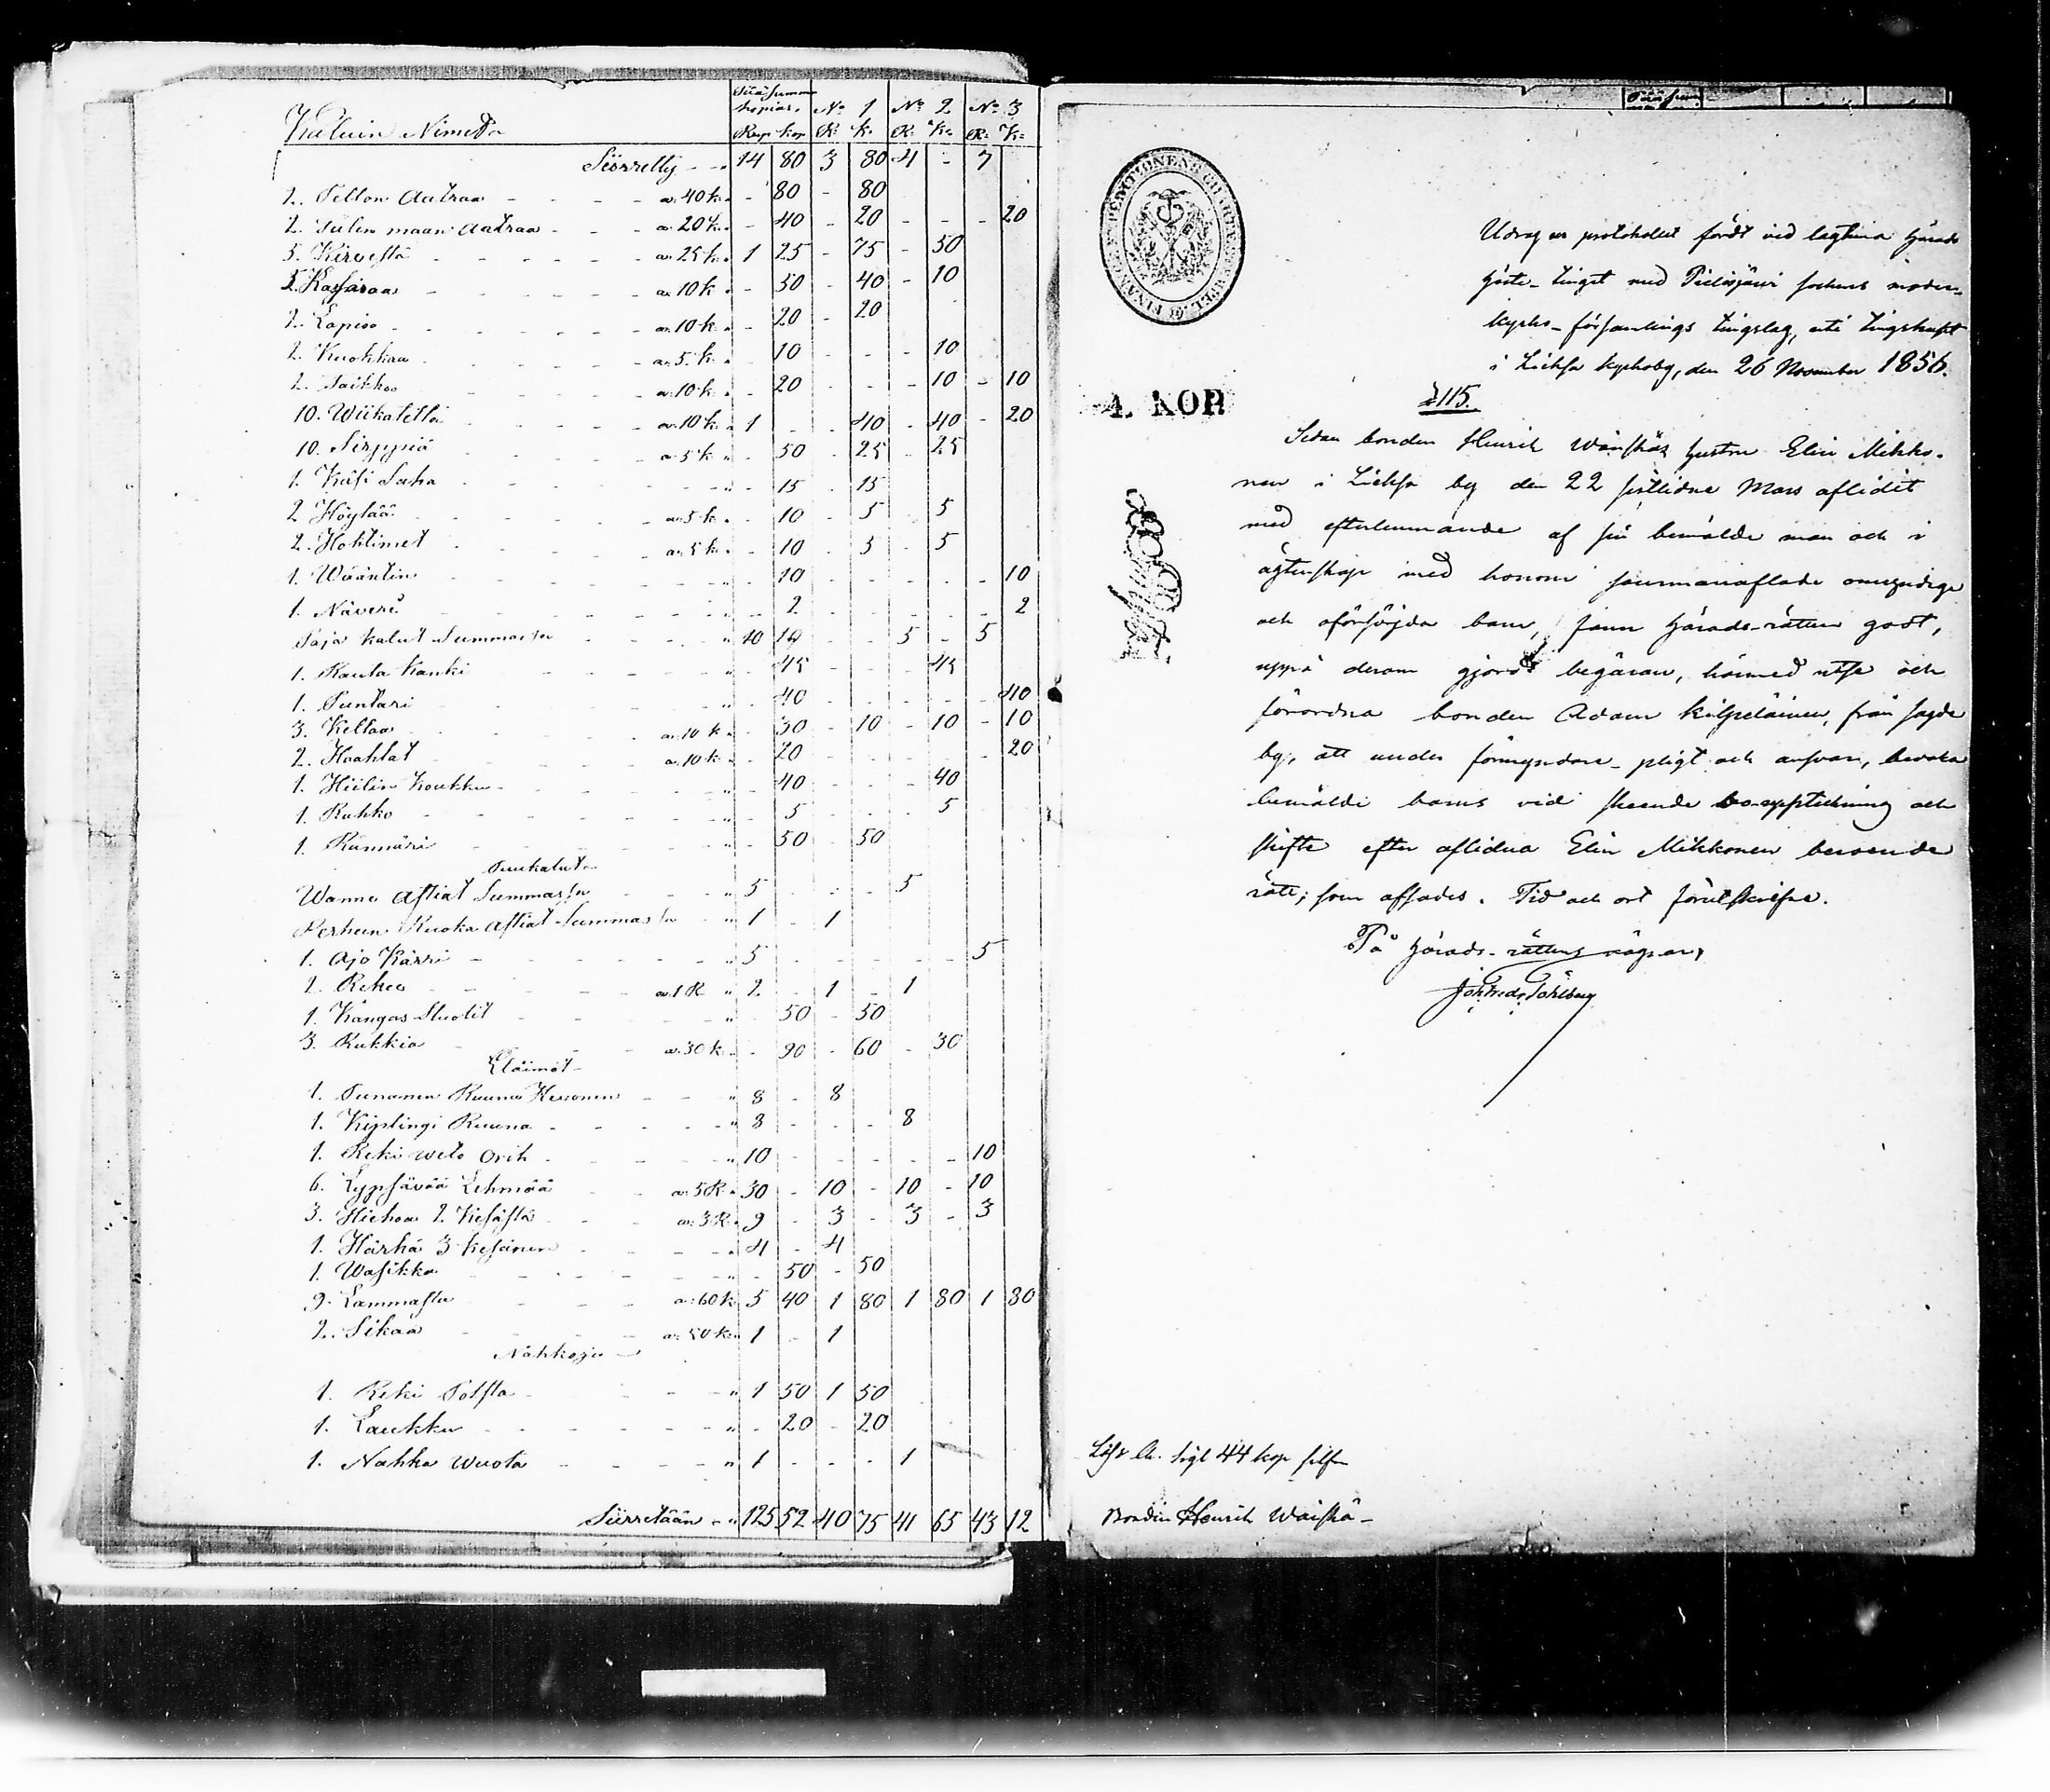 Kaluin Nimetä
Pääsumma
hopias. No 1 No 2 No 3
Rup kop R: k: R: K: R: K:
Siirretty - - " 14 80 3 80 4 - 7
2. Pellon Aatraa - - - - a. 40 k. - 80 - 80
2. Tulen maan Aatraa - - - a. 20 k. - 40 - 20 - - - 20
5. Kirvestä - - - - - a. 25 k. 1 25 - 75 - 50
5. Kassaraa - - - - - a. 10 k. - 50 - 40 - 10
2. Lapioo - - - - - a. 10 k. - 20 - 20
2. Kuokkaa - - - - a. 5. k. - 10 - - - 10
2. Taikkoo - - - - a. 10 k. - 20 - - - 10 - 10
10. Wiikatetta - - - - a. 10 k. 1 - - 40 - 40 - 20
10. Sirppiä - - - - a. 5 k. - 50 - 25 - 25
1. Käsi Saha - - - - " - 15 - 15
2 Höylää - - - - a. 5 k. - 10 - 5 - 5
2. Hohtimet - - - - a. 5 k. - 10 - 5 - 5
1. Wääntin - - - - " - 10 - - - - - 10
1. Näveri - - - - " - 2 - - - - - 2
Paja kalut Summassa - - - " 10 - - - 5 - 5
1. Rauta Kanki - - - " - 45 - - - 45
1. Puntari - - - " - 40 - - - - - 40
3. Kellaa - - - a. 10 k. - 30 - 10 - 10 - 10
2. Haahlat - - - a. 10 k. - 20 - - - - - 20
1. Hiilin Koukku - - - " - 40 - - - 40
1. Kuhko - - - " - 5 - - - 5
1. Rännäri - - - " - 50 - 50
Puukalut -
Wanno Astiat Summassa - - - " 5 - - - 5
Perheen Ruoka Astiat Summassa - - " 1 - 1
1. Ajo Kärri - - - " 5 - - - - - 5
2. Rekeo - - - a. 1 R " 2 - 1 - 1
1. Kangas Stuolit - - - " - 50 - 50
3. Rukkia - - - a. 30 k. - 90 - 60 - 30
Eläimet -
1. Punanen Ruuna Hevonen - - " 8 - 8
1. Kiplingi Ruuna - - - - " 8 - - - 8
1. Reki weto Orih - - - " 10 - - - - - 10
6. Lypsävää Lehmää - - a. 5 R. " 30 - 10 - 10 - 10
3. Hiehoa 2. Kesästä - - - a. 3 R. 9 - 3 - 3 - 3
1. Härkä 3 kesänen - - - " 4 - 4
1. Wasikka - - - - " - 50 - 50
9. Lammasta - - - a: 60 k. 5 40 1 80 1 80 1 80
2. Sikaa - - - a. 50 k. " 1 - 1
Nahkoja -
1. Reki - - - " 1 50 1 50
1. Laukku - - - " - 20 - 20
1. Nahka wuota - - - " 1 - - - 1
Siirretään - " 125 52 40 75 41 65 43 12
4. KOP.
Utdrag ur protokollet fördt vid lagtima Härads
Höste-tinget med Pielisjärvi sockens moder-
kyrko-församlings tingslag, uti tingshuset
i Lieksa kyrkoby, den 26 November 1856.
§ 115.
Sedan bonden Henrik Wäiskäs hustru Elin Mikko-
nen i Lieksa by den 22 sistlidne Mars aflidit
med efterlemnande af sin bemälde man och i
ägtenskap med honom sammanaflade omyndige
och oförsörjda barn, fann Härads-rätten godt,
uppå derom gjord begäran, härmed utse och
förordna bonden Adam Kilpeläinen, från sagde
by, att under förmyndare-pligt och ansvar, bevaka
bemälde barns vid skeende bo-uppteckning och
skifte efter aflidna Elin Mikkonen beroende
rätt; som afsades. Tid och ort förutskrefne.
På Härads-rättens vägnar,
Joh Fredr Påhlberg
Lös. Ch. Sigl 44 kop silfr
Bonden Henrik Wäiskä -